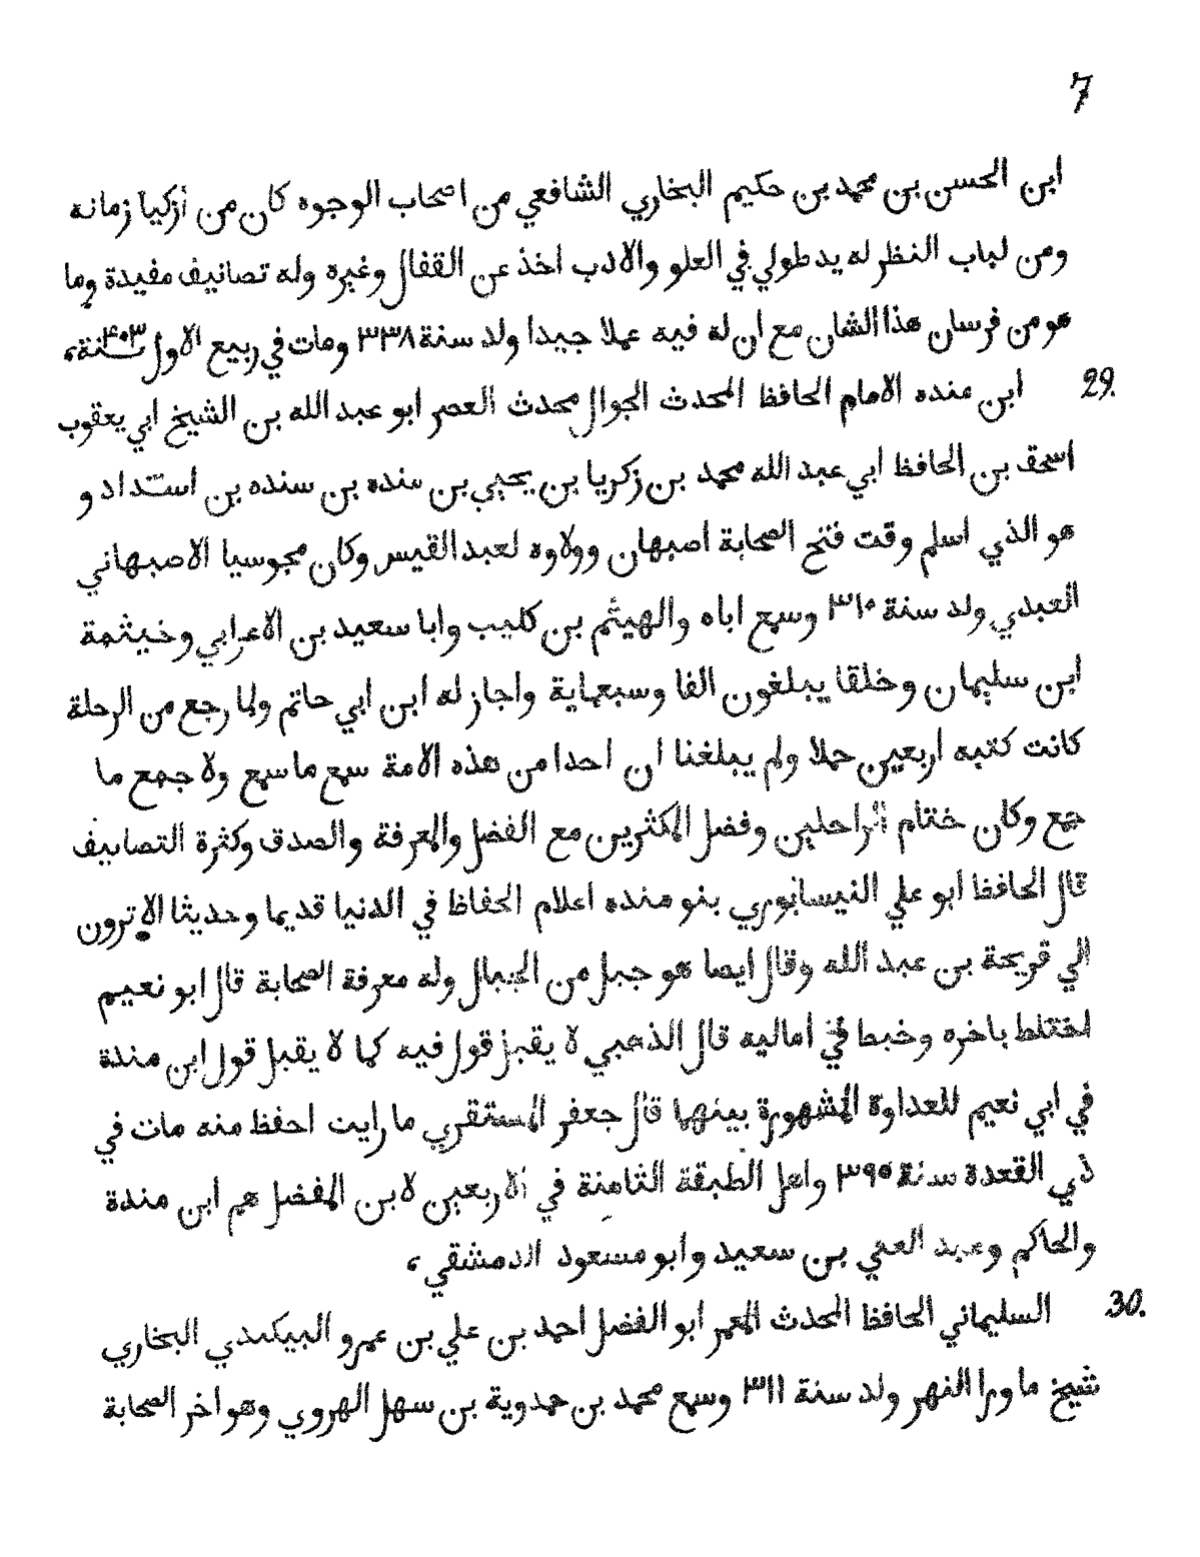 7
ابن الحسن بن محمد بن حكيم البخاري الشافعي من اصحاب الوجوه كان من ازكيا زمانه
ومن لباب النظر له يد طولي في العلو والادب اخذ عن القفال وغيره وله تصانيف مفيدة وما
هو من فرسان هذا الشان مع ان له فيه عملا جيدا ولد سنة ٣٣٨ ومات في ربيع الاول سنة ٤٠٣،
29. ابن منده الامام الحافظ المحدث الجوال محدث العصر ابو عبد الله بن الشيخ ابي يعقوب
اسحق بن الحافظ ابي عبد الله محمد بن زكريا بن يحيي بن منده بن سنده بن استداد و
هو الذي اسلم وقت فتح الصحابة اصبهان وولاوه لعبد القيس وكان مجوسيا الاصبهاني
العبدي ولد سنة ٣١٠ وسمع اباه والهيثم بن كليب وابا سعيد بن الاعرابي وخيثمة
ابن سليمان وخلقا يبلغون الفا وسبعماية واجاز له ابن ابي حاتم ولما رجع من الرحلة
كانت كتبه اربعين حملا ولم يبلغنا ان احدا من هذه الامة سمع ما سمع ولا جمع ما
جمع وكان ختام الراحلين وفضل المكثرين مع الفضل والمعرفة والصدق وكثرة التصانيف
قال الحافظ ابو علي النيسابوري بنو منده اعلام الحفاظ في الدنيا قديما وحديثا الا ترون
الي قريحة بن عبد الله وقال ايضا هو جبل من الجبال وله معرفة الصحابة قال ابو نعيم
اختلط باخره وخبط في اماليه قال الذهبي لا يقبل قول فيه كما لا يقبل قول ابن مندة
في ابي نعيم للعداوة المشهورة بينهما قال جعفر المستقري ما رايت احفظ منه مات في
ذي القعدة سنة ٣٩٥ واهل الطبقة الثامنة في الاربعين لابن المفضل هم ابن مندة
والحاكم وعبد الغني بن سعيد وابو مسعود الدمشقي،
30. السليماني الحافظ المحدث المعمر ابو الفضل احمد بن علي بن عمرو البيكندي البخاري
شيخ ما ورا النهر ولد سنة ٣١١ وسمع محمد بن حمدوية بن سهل الهروي وهو اخر الصحابة